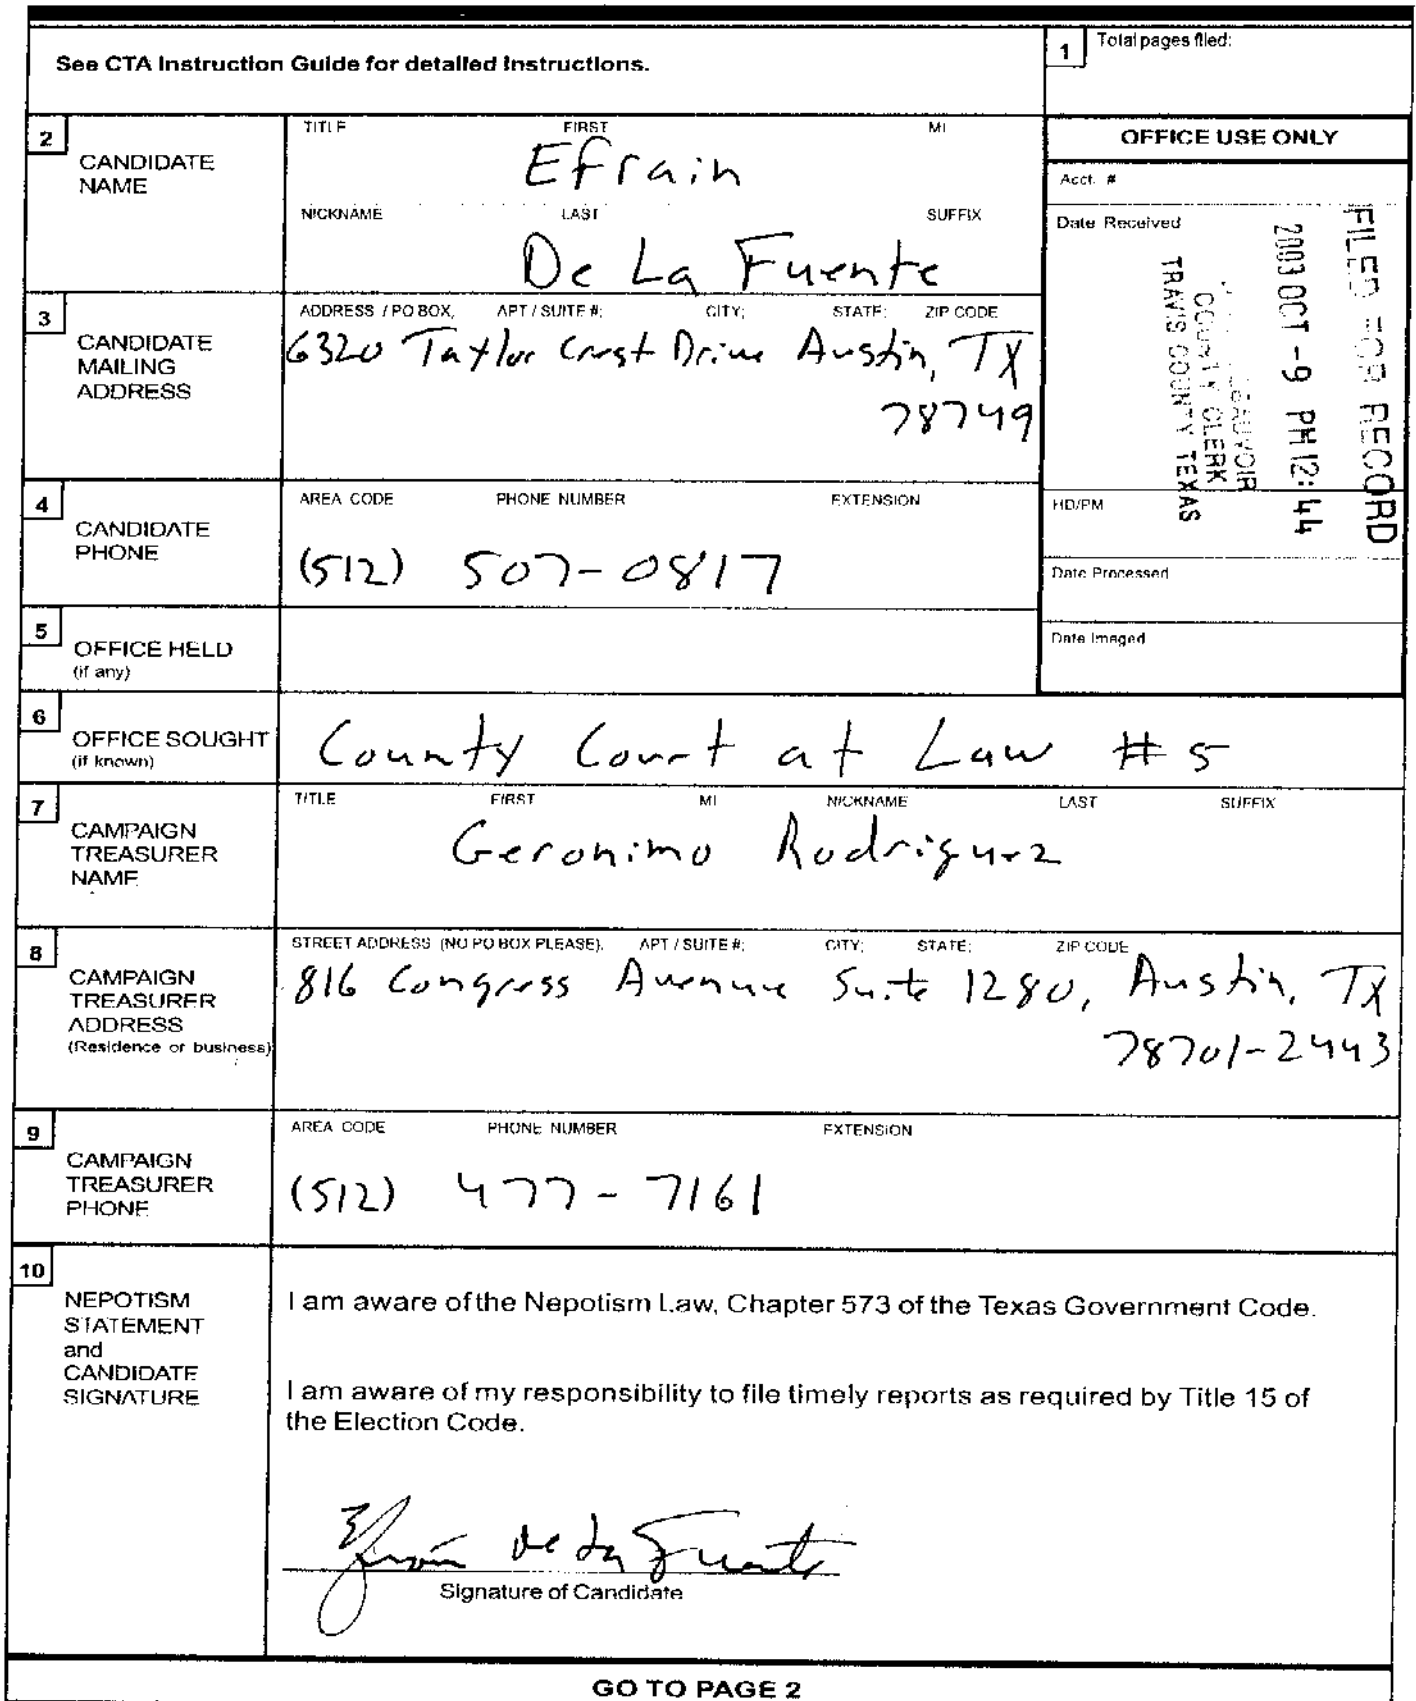 See CTA Instruction Guide for detailed Instructions.
1 Total pages filed:
2 CANDIDATE NAME
TITLE FIRST MI
Efrain
NICKNAME LAST SUFFIX
De La Fuente
OFFICE USE ONLY
Acct. #
Date Received
FILED FOR RECORD
2003 OCT -9 PM 12:44
COUNTY CLERK
TRAVIS COUNTY TEXAS
HD/PM
Date Processed
Date Imaged
3 CANDIDATE MAILING ADDRESS
ADDRESS / PO BOX; APT / SUITE #; CITY; STATE; ZIP CODE
6320 Taylor Crest Drive Austin, TX
78749
4 CANDIDATE PHONE
AREA CODE PHONE NUMBER EXTENSION
(512) 507-0817
5 OFFICE HELD
(if any)
6 OFFICE SOUGHT
(if known)
County Court at Law #5
7 CAMPAIGN TREASURER NAME
TITLE FIRST MI NICKNAME LAST SUFFIX
Geronimo Rodriguez
8 CAMPAIGN TREASURER ADDRESS
(Residence or business)
STREET ADDRESS (NO PO BOX PLEASE); APT / SUITE #; CITY; STATE; ZIP CODE
816 Congress Avenue Suite 1280, Austin, TX
78701-2443
9 CAMPAIGN TREASURER PHONE
AREA CODE PHONE NUMBER EXTENSION
(512) 477-7161
10 NEPOTISM STATEMENT and CANDIDATE SIGNATURE
I am aware of the Nepotism Law, Chapter 573 of the Texas Government Code.
I am aware of my responsibility to file timely reports as required by Title 15 of
the Election Code.
Efraín De La Fuente
Signature of Candidate
GO TO PAGE 2